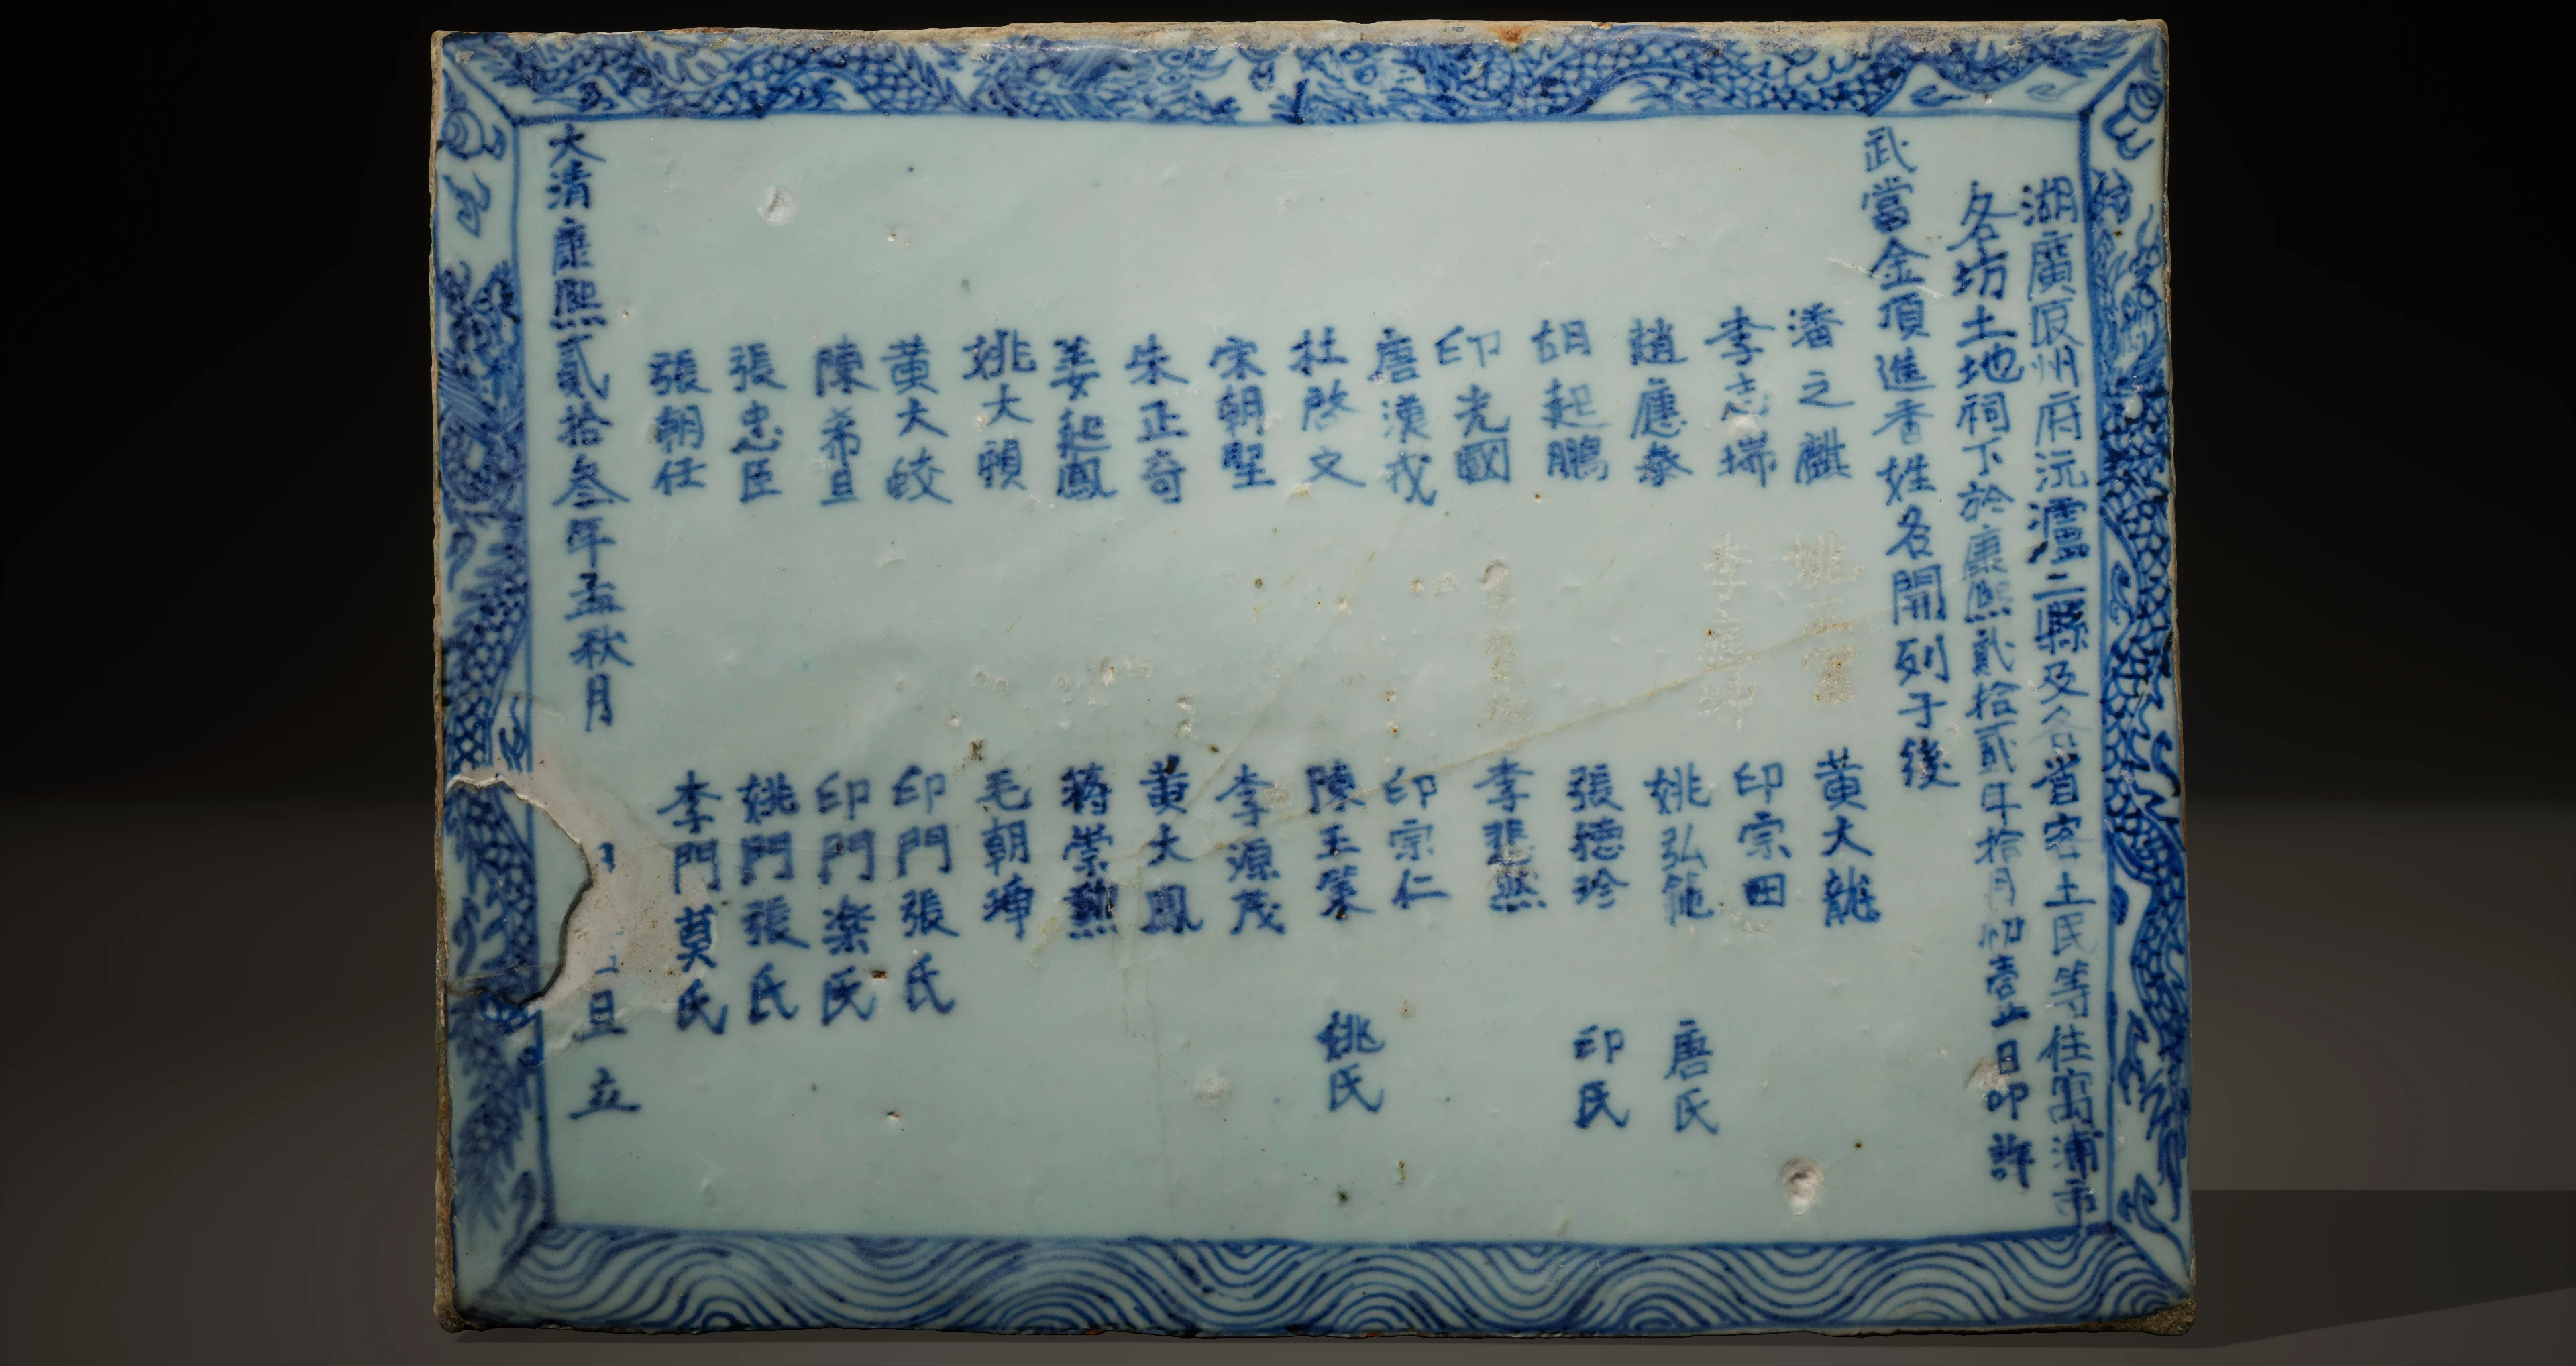 湖廣辰州府沅瀘二縣及各省客土民等住寓浦市
各坊土地祠下於康熙貳拾貳年拾月初壹日叩許
武當金頂進香姓名開列于後
潘之麒
李志瑞
趙應泰
胡起鵬
印光國
唐漢戎
杜啓文
宋朝堅
朱正奇
姜起鳳
姚大
黄大皎
陳希旦
張忠臣
張朝任
姚
李
黄大龍
印宗田
姚弘 唐氏
張德珍 印氏
李 然
印宗仁
陳王策 姚氏
李源茂
黄大鳳
蒋崇勲
毛朝
印門張氏
印門楽氏
姚門張氏
李門莫氏
大清康熙貳拾叁年孟秋月 旦立